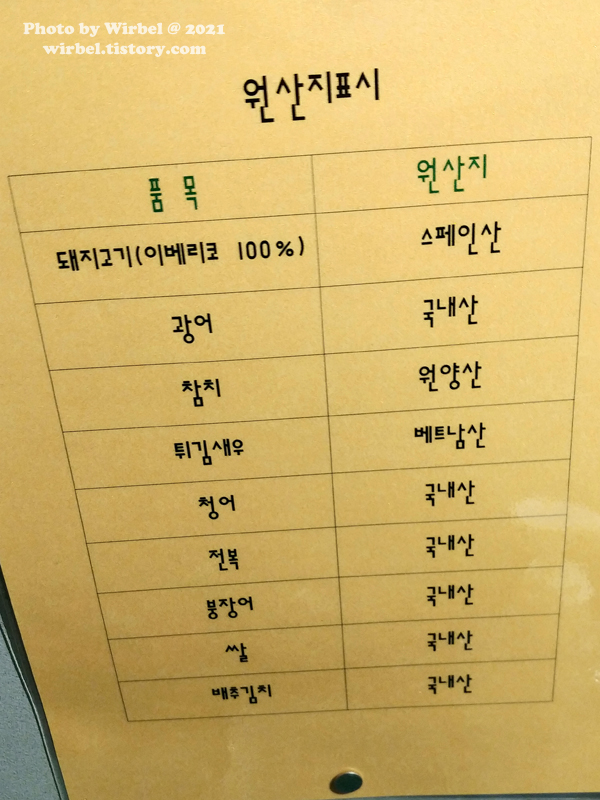 Photo by Wirbel @ 2021
wirbel.tistory.com
원산지표시
품 목 원산지
돼지고기(이베리코 100%) 스페인산
광어 국내산
참치 원양산
튀김새우 베트남산
청어 국내산
전복 국내산
붕장어 국내산
쌀 국내산
배추김치 국내산